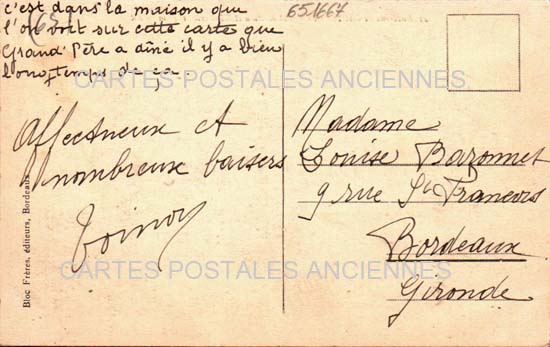 c'est dans la maison que
l'on voit sur cette carte que
Grand' Père a dîné il y a bien
longtemps de ça.
651667
Affectueux et
nombreux baisers
Madame
Louise Baronnet
9 rue St François
Bordeaux
Gironde
Bloc Frères, éditeurs, Bordeaux
CARTES POSTALES ANCIENNES
CARTES POSTALES ANCIENNES